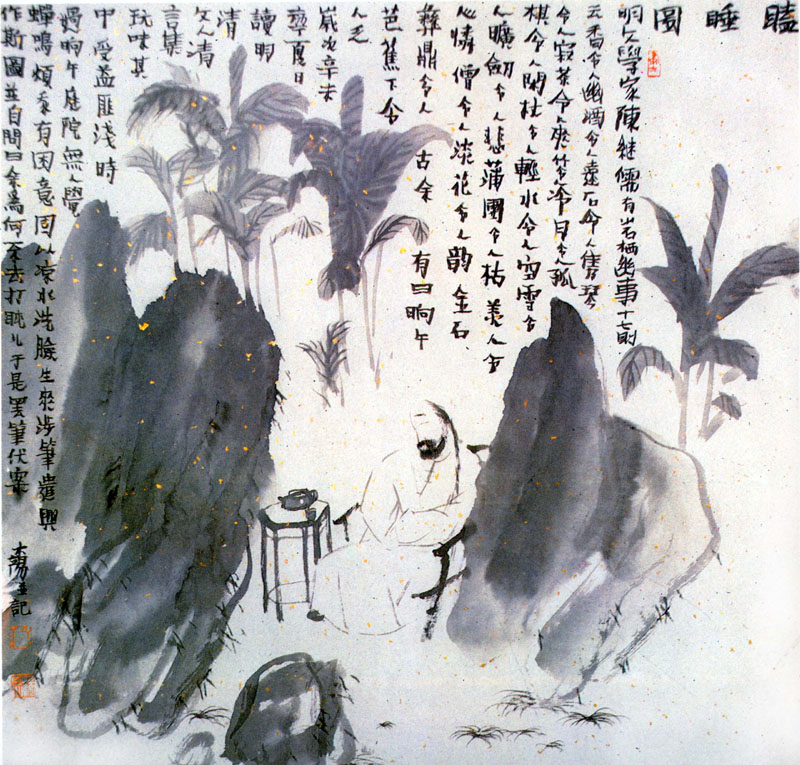 瞌睡圖
明文學家陳継儒有岩栖幽事十七則
云香令人幽酒令人遠石令人雋琴
令人寂茶令人爽竹令人冷月令人孤
棋令人閑杖令人輕水令人空雪令
人曠劍令人悲蒲團令人枯美人令
心憐僧令人淡花令人韵金石
彝鼎令人古余有曰晌午
芭蕉下令
人乏
歲次辛未
夏日
讀明
清
文人清
言集
玩味其
中受益匪淺時
過晌午庭院無人覺
蟬鳴煩有困意因以凉水洗臉生爽涉筆遣興
作斯圖並自問曰余為何不去打盹儿于是罢筆伏案
並記